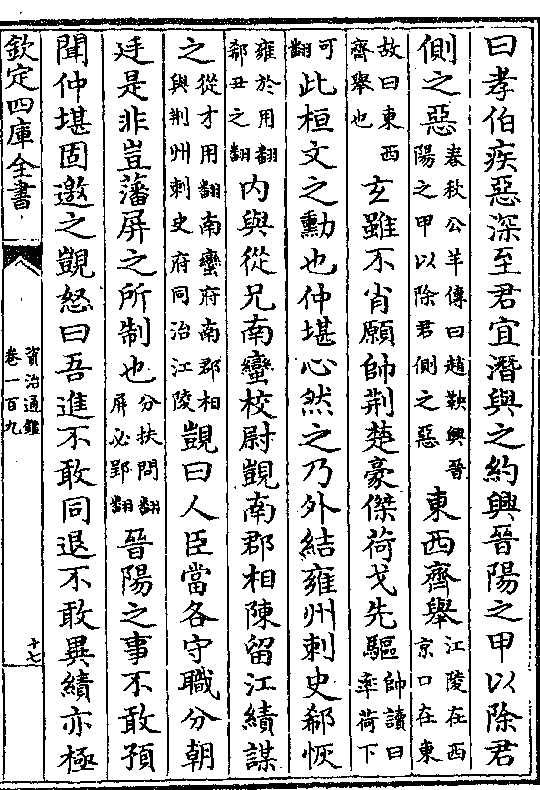 曰孝伯疾惡深至君宜潛與之約興晉陽之甲以除君
側之惡春秋公羊傳曰趙鞅興晉陽之甲以除君側之惡東西齊舉江陵在西京口在東
故曰東西齊舉也玄雖不肖願帥荆楚豪傑荷戈先驅帥讀曰率荷下
可翻此桓文之勳也仲堪心然之乃外結雍州刺史郗恢
雍於用翻郗丑之翻内與從兄南蠻校尉覬南郡相陳留江績謀
之從才用翻南蠻府南郡相與荆州刺史府同治江陵覬曰人臣當各守職分朝
廷是非豈藩屏之所制也分扶問翻屏必郢翻晉陽之事不敢預
聞仲堪固邀之覬怒曰吾進不敢同退不敢異績亦極
欽定四庫全書
資治通鑑
卷一百九
十七